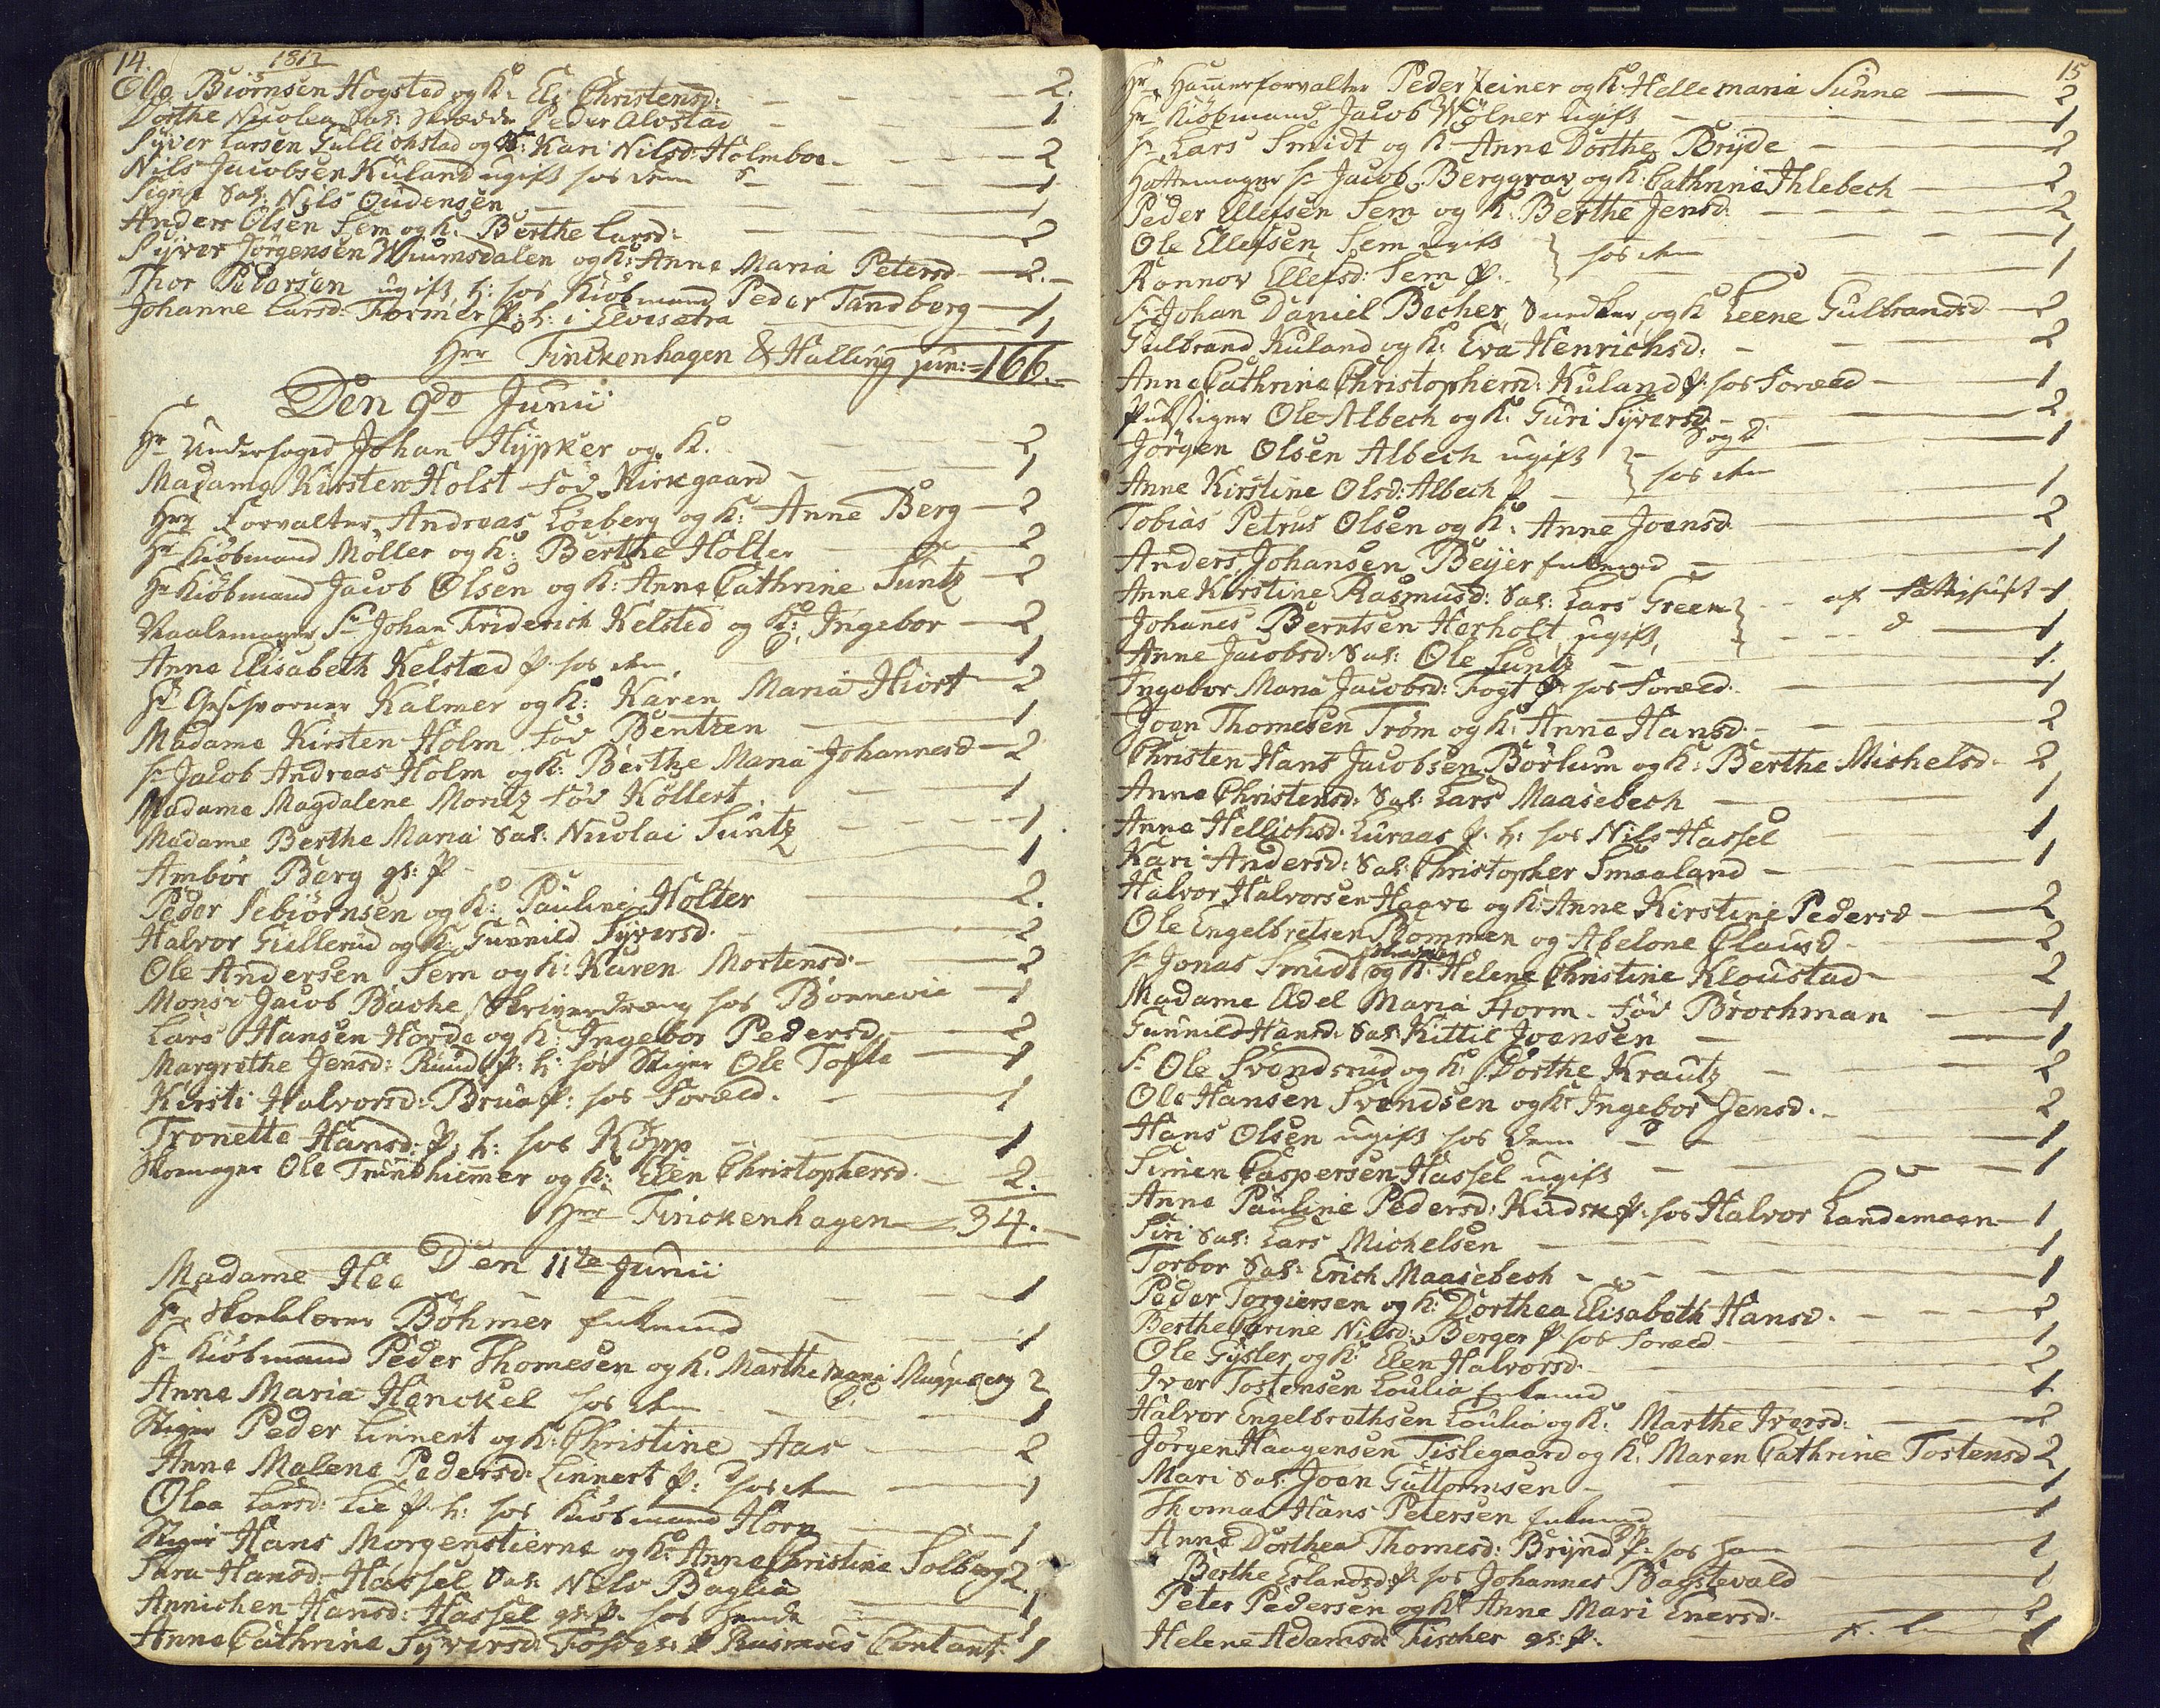 14. 1812
Ole Biörnsen Hogstad og K: Eli Christensd: 2.
Dorthe Nicolea Sal: Peder Alvstad 1
Syver Larsen Gullichstad og K: Kari Nilsd: Holmboe 2
Nils Jacobsen Kuland ugift hos dem 1
Signe Sal: Nils Oudensen 1
Anders Olsen Sem og K: Berthe Larsd: 2
Syver Jörgensen Wiumsdalen og K: Anne Maria Petersd 2.
Thor Pedersen ugift h: hos Kiöbmand Peder Tandberg 1
Johanne Larsd: Former P: h: i Elvesætra 1
Hrr Finckenhagen & Halling jun: = 166.
Den 9de Junii
Hr Underfoged Johan Hypker og K. 2
Madame Kirsten Holst Föd Kirkgaard 1
Hrr Forvalter Andreas Löeberg og K: Anne Berg 2
Hr Kiöbmand Möller og K: Berthe Holter 2
Hr Kiöbmand Jacob Olsen og K: Anne Cathrine Suntz 2
Maalemager Sr Johan Friderich Kelsted og K: Ingebor 2
Anne Elisabeth Kelsted P. hos dem 1
Hr Geschvorner Kalmer og K: Karen Maria Hiort 2
Madame Kirsten Holm Föd Bentzen 1
Sr Jacob Andreas Holm og K: Berthe Maria Johannesd 2
Madame Magdalene Moritz Föd Köllert 1
Madame Berthe Maria Sal: Nicolai Suntz 1
Ambör Berg gs: P 1
Peder Sebiörnsen og K: Pauline Holter 2.
Halvor Gullerud og K: Gunnild Syversd. 2
Ole Andersen Sem og K: Karen Mortensd: 2
Monsr Jacob Bache Skriverdreng hos Bonnevie 1
Lars Hansen Horde og K: Ingebor Pedersd 2
Margrethe Jensd: Ruud P: h: hos Stiger Ole Tofte 1
Kirsti Halvorsd: Brua P: hos Foræld. 1
Tronette Hansd: P: h: hos Kopp 1
Skomager Ole Trundhiemer og K: Elen Christophersd. 2.
Hrr Finckenhagen 34.
Den 11te Junii
Madame Hee 1
Hr Skolelærer Böhmer Enkemand 1
Hr Kiöbmand Peder Thomesen og K: Marthe Maria 2
Anne Maria Henckel hos dem 1
Stiger Peder Linnert og K: Christine Aas 2
Anne Malene Pedersd: Linnert P: hos dem 1
Olea Larsd: Lie P. h: hos Kiöbmand Horn 1
Stiger Hans Morgenstierne og K: Anne Christine Solberg 2
Sara Hansd: Hassel Sal: Nils Baglia 1
Annichen Hansd: Hassel gs: P. hos hende 1
Anne Cathrine Syversd: Foss gs: P Rasmus Contant: 1
15
Hr Hamerforvalter Peder Steiner og K: Helle Maria Sunne 2
Hr Kiöbmand Jacob Wölner ugift 1
Sr Lars Smidt og K Anne Dorthe Bryde 2
Hattemager Sr Jacob Berggrav og K: Cathrine Ihlebech 2
Peder Ellefsen Sem og K: Berthe Jensd: 2
Ole Ellefsen Sem ugift } hos dem 1
Ronnov Ellefsd: Sem P. 1
Sr Johan Daniel Becher Snedker og K Leene Gulbrandsd 2
Gulbrand Kuland og K: Eva Henrichsd: 2
Anne Cathrine Christophersd: Kuland P. hos Foræld 1
Pukstiger Ole Albech og K: Guri Syversd 2
Jörgen Olsen Albech ugift 1
Anne Kirstine Olsd: Albech P } hos dem 1
Tobias Petrus Olsen og K: Anne Joensd 2
Anders Johansen Beyer Enkemand 1
Anne Kirstine Rasmusd: Sal: Lars Green } af Fattighuset 1
Johanes Berntsen Herholt ugift 1
Anne Jacobsd: Sal: Ole Suntz 1.
Ingebor Maria Jacobsd: Fogt P: hos Foræld: 1
Joen Thomesen Tröm og K: Anne Hansd 2
Christen Hans Jacobsen Börlum og K: Berthe Michelsd. 2
Anne Christensd: Sal: Lars Maasebech 1
Anne Hellichsd: Luraas P. h: hos Nils Hassel 1
Kari Andersd: Sal: Christopher Smaaland 1
Halvor Halvorsen Haave og K: Anne Kirstine Pedersd 2
Ole Engelbretsen Stommen og Abelone Clausd 2
Sr Jonas Smidt og K: Helene Christine Kloustad 2
Madame Edel Maria Horm Föd Brochman 1
Gunnild Hansd: Sal: Kittil Joensen 1
Sr Ole Svendsrud og K: Dorthe Krautz 2
Ole Hansen Svendsen og K: Ingebor Jensd. 2
Hans Olsen ugift hos dem 1
Simen Caspersen Hassel ugift 1
Anne Pauline Pedersd: Kudsk P. hos Halvor Landemoen 1
Siri Sal: Lars Michelsen 1
Torbor Sal: Erich Maasebech 1
Peder Torgiersen og K: Dorthea Elisabeth Hansd. 2
Berthe Carine Nilsd: Berger P. hos Foræld 1
Ole Gysler og K: Elen Halvorsd. 2
Iver Tostensen Loulia Enkemand 1
Halvor Engelbrethsen Loulia og K: Marthe Iversd: 2
Jörgen Haagensen Tislegaard og K: Maren Cathrine Tostensd 2
Mari Sal: Joen Guttormsen 1
Thomas Hans Petersen Enkemand 1
Anne Dorthea Thomesd: Brynd P: hos ham 1
Berthe Erlandsd P: hos Johannes Bagstevold 1
Peter Pedersen og K: Anne Mari Enersd: 2
Helene Adamsd: Fischer gs: P. 1